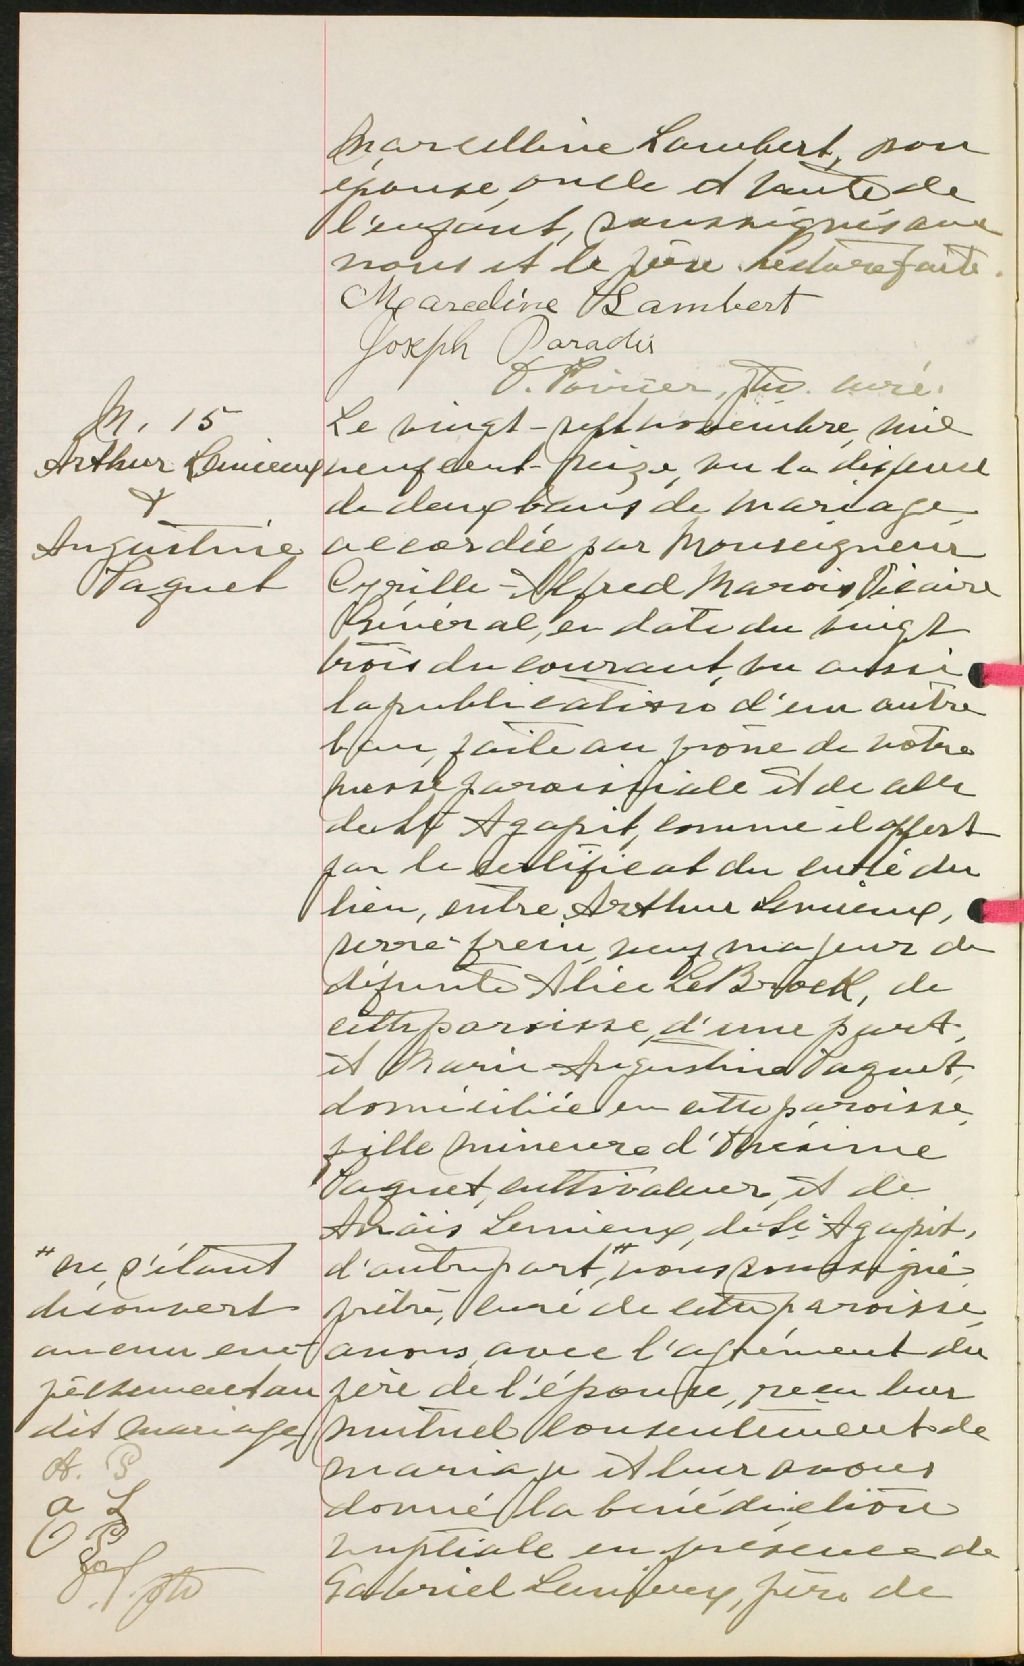 Marcelline Lambert, son
épouse, oncle et tante de
l'enfant, soussignés avec
nous et le père. Lecture faite.
Marceline Lambert
Joseph Paradis
Poirier, ptre. curé.
M. 15
Arthur Lemieux
&
Augustine
Paquet
Le vingt-sept novembre, mil
neuf cent-seize, vu la dispense
de deux bans de mariage
accordée par Monseigneur
Cyrille-Alfred Marois, Vicaire
Général, en date du vingt
trois du courant, vu aussi
la publication d'un autre
ban, faite au prône de notre
messe paroissiale et de celle
de St Agapit, comme il appert
par le certificat du curé du
lieu, entre Arthur Lemieux,
serre-frein, veuf majeur de
défunte Alice LeBrock, de
cette paroisse, d'une part,
et Marie-Augustine Paquet,
domiciliée en cette paroisse,
fille mineure d'Onésime
Paquet, cultivateur, et de
Anaïs Lemieux, de St Agapit,
d'autre part, " nous soussigné
prêtre, curé de cette paroisse,
avons, avec l'agrément du
père de l'épouse, reçu leur
mutuel consentement de
mariage et leur avons
donné la bénédiction
nuptiale en présence de
Gabriel Lemieux, père de
" ne s'étant
découvert
aucun em-
pêchement au
dit mariage,
A. P
a L
O P
ptre